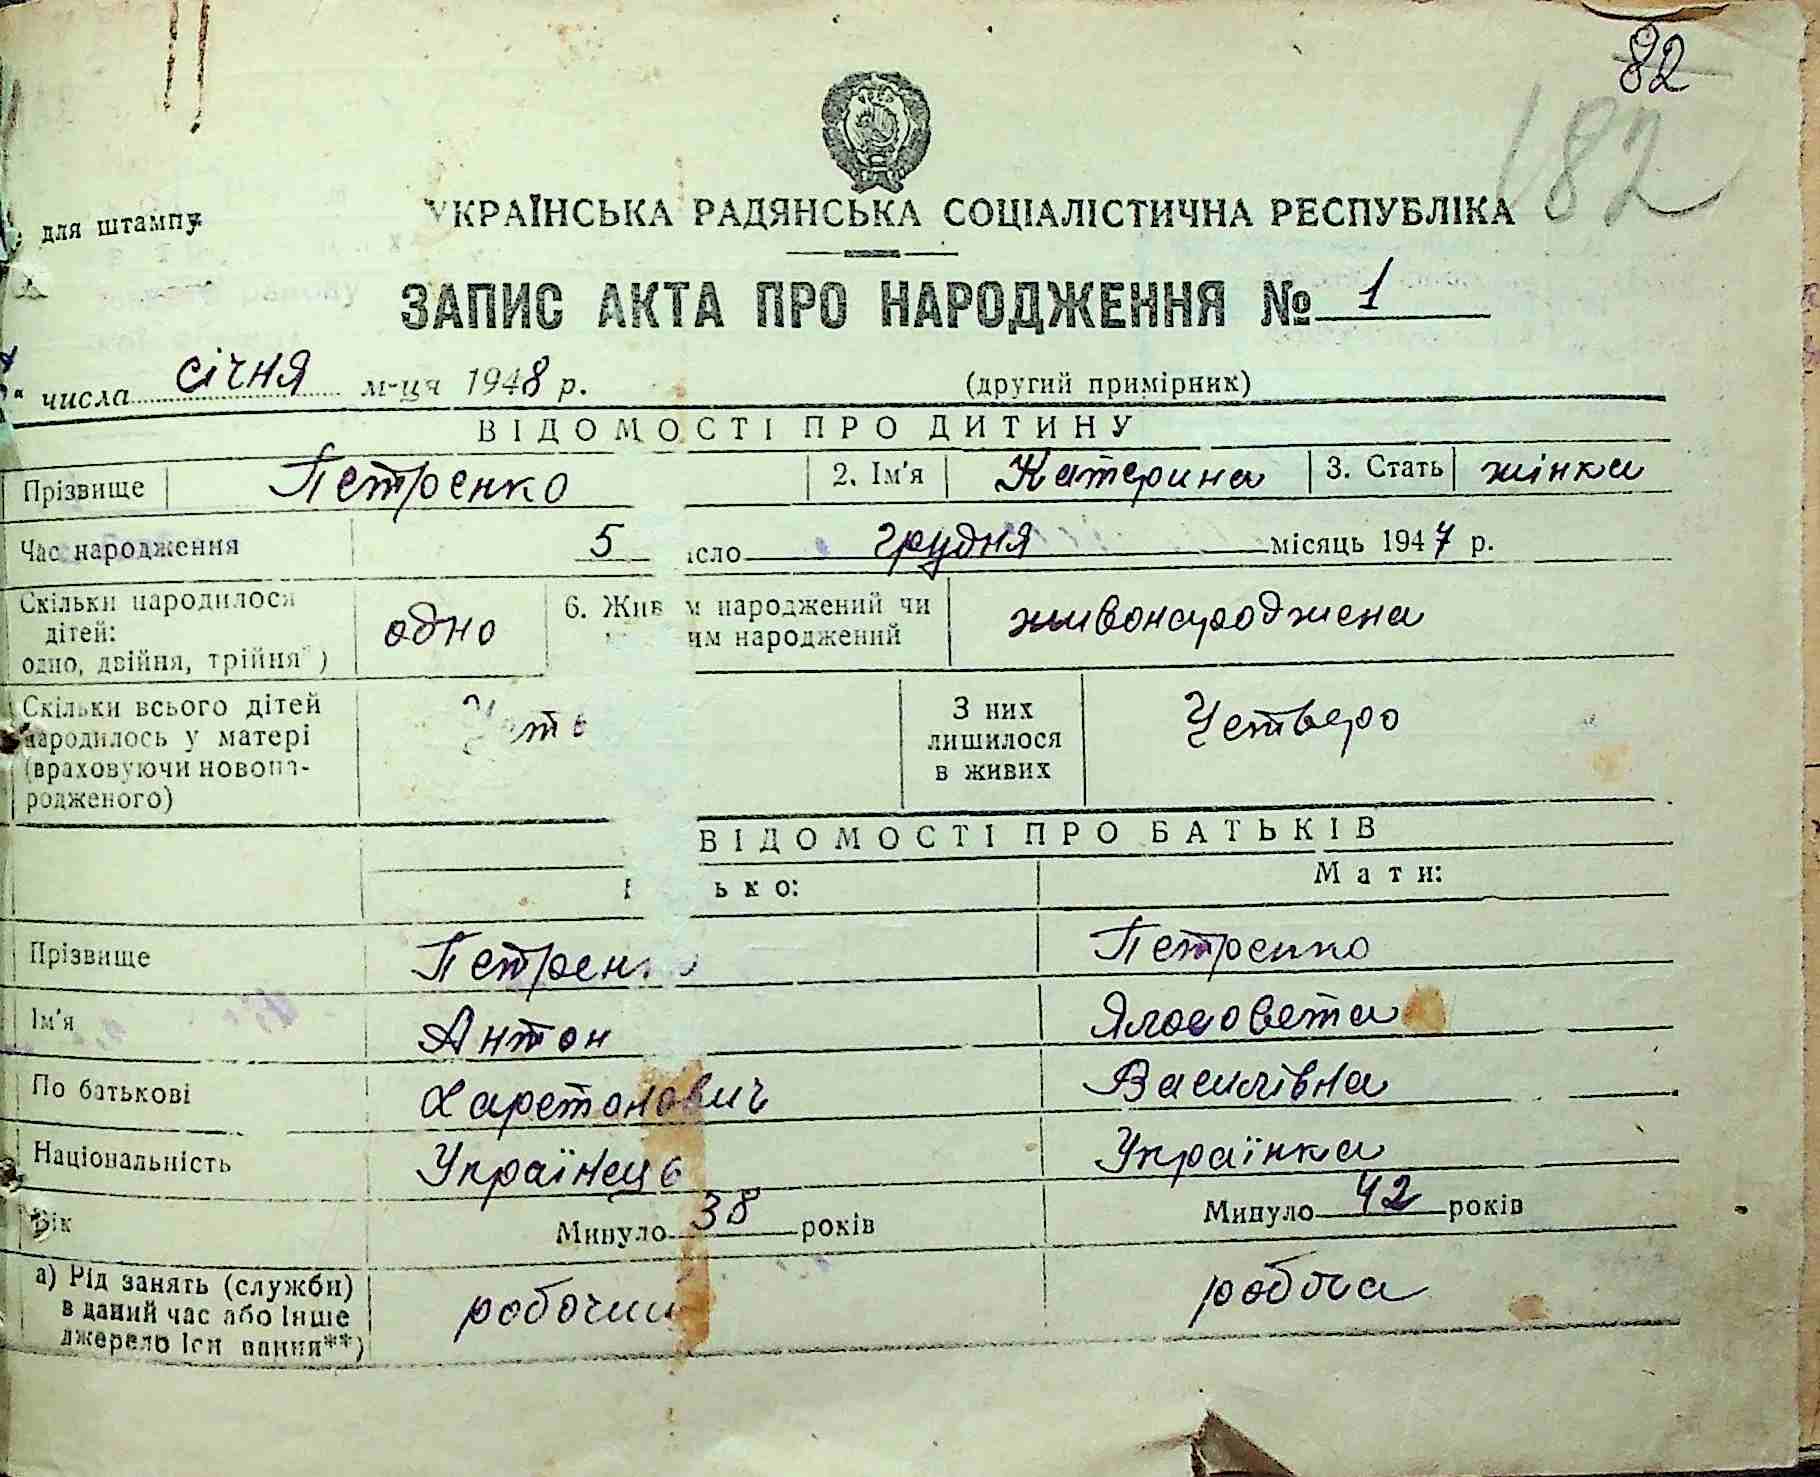 82
182
для штампу
УКРАЇНСЬКА РАДЯНСЬКА СОЦІАЛІСТИЧНА РЕСПУБЛІКА
ЗАПИС АКТА ПРО НАРОДЖЕННЯ № 1
" числа січня м-ця 1948 р.
(другий примірник)
ВІДОМОСТІ ПРО ДИТИНУ
Прізвище Петренко 2. Ім'я Катерина 3. Стать жінка
Час народження 5 ісло грудня місяць 1947 р.
Скільки народилося дітей: одно, двійня, трійня*) одно 6. Жив м народжений чи им народжений живонароджена
Скільки всього дітей народилось у матері (враховуючи новона-родженого) З них лишилося в живих Четверо
ВІДОМОСТІ ПРО БАТЬКІВ
ько: Мати:
Прізвище Петренко Петренко
Ім'я Антон Ялосовета
По батькові Харетонович Василівна
Національність Українець Українка
Вік Минуло 38 років Минуло 42 років
а) Рід занять (служби) в даний час або інше джерело існ вання**) робочий робоча